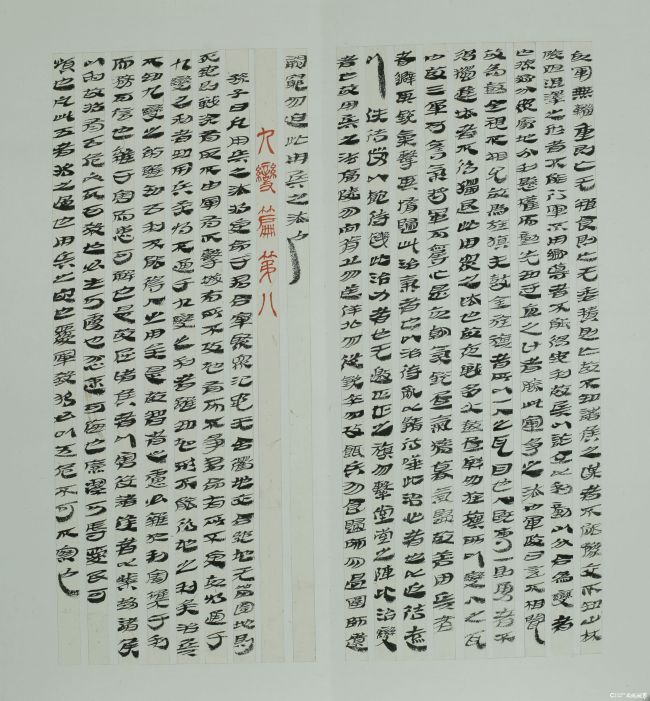 故軍無輜重則亡无糧食則亡无委積則亡故不知諸侯之謀者不能豫交不知山林
險阻沮澤之形者不能行軍不用鄉導者不能得地利故兵以詐立以利動以分合為變者
也掠鄉分眾廓地分利懸權而動先知迂直之計者勝此軍爭之法也軍政曰言不相聞
故為鼓金視不相見故為旌旗夫金鼓旌旗者所以一人之耳目也人既專一則勇者不
得獨進怯者不得獨退此用眾之法也故夜戰多火鼓晝戰多旌旗所以變人之耳
目故三軍可奪氣將軍可奪心是故朝氣銳晝氣惰暮氣歸故善用兵者
避其銳氣擊其惰歸此治氣者也以治待亂以靜待嘩此治心者也以近待遠
以佚待勞以飽待飢此治力者也无邀正正之旗勿擊堂堂之陣此治變
者也故用兵之法高陵勿向背丘勿逆佯北勿從銳卒勿攻餌兵勿食歸師勿遏圍師遺
闕寇勿迫此用兵之法也
九變篇第八
孫子曰凡用兵之法將受命于君合軍聚眾圮地无舍衢地交合絕地无留圍地則
死地則戰塗有所不由軍有所不擊城有所不攻地有所不爭君命有所不受故將通于
九變之利者知用兵矣將不通于九變之利者雖知地形不能得地之利矣治兵
不知九變之術雖知五利不能得人之用矣是故智者之慮必雜于利害雜于利
而務可信也雜于害而患可解也是故屈諸侯者以害役諸侯者以業趨諸侯
以利故必生可虜也忿速可侮也廉潔可辱愛民可
煩也凡此五者將之過也用兵之災也覆軍殺將必以五危不可不察也